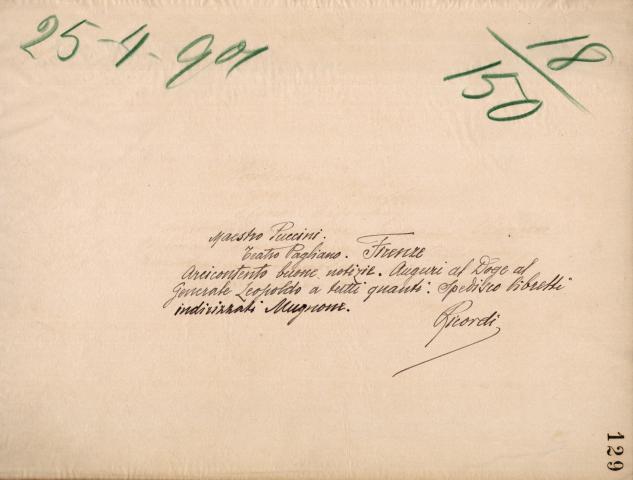 25-4-901
18/150
Maestro Puccini.
Teatro Pagliano. Firenze
Arcicontento buone notizie. Auguri al Doge al
Generale Leopoldo a tutti quanti. Spedisco libretti
indirizzati Mugnone.
Ricordi
129